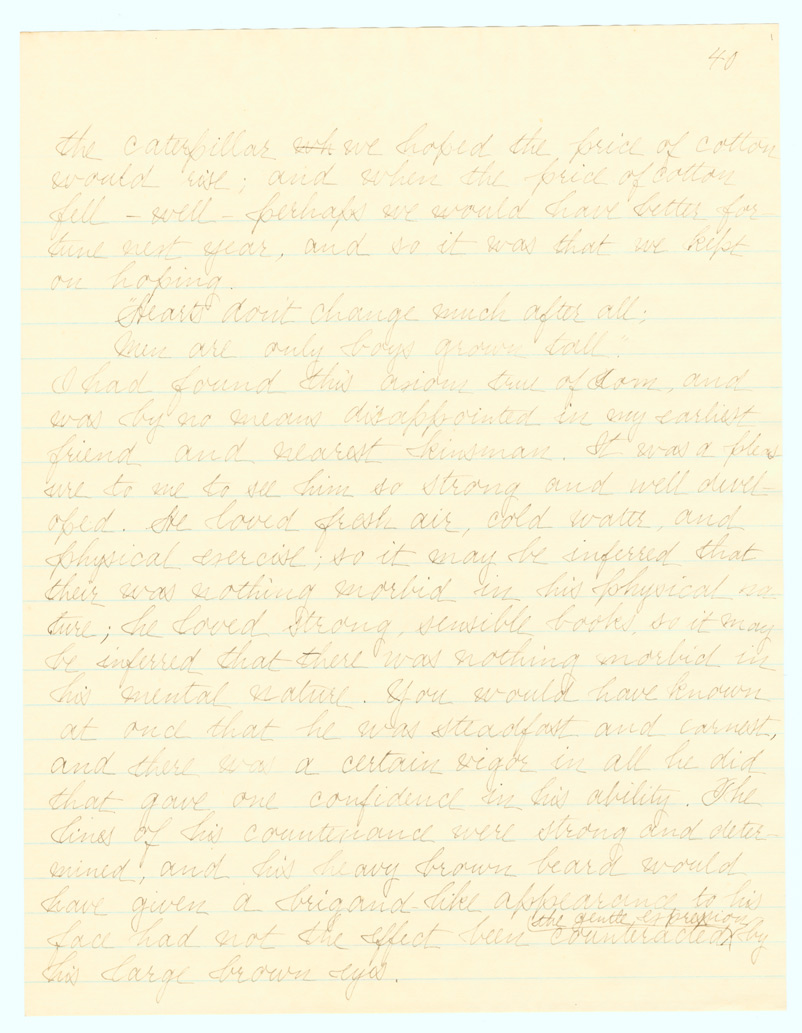 40
the caterpillar wh we hoped the price of cotton
would rise; and when the price of cotton
fell - well - perhaps we would have better for
tune next year, and so it was that we kept
on hoping.
"Hearts don't change much after all;
Men are only boys grown tall".
I had found this axiom true of Tom, and
was by no means disappointed in my earliest
friend and nearest kinsman. It was a pleas
ure to me to see him so strong and well devel=
oped. He loved fresh air, cold water, and
physical exercise; so it may be inferred that
their was nothing morbid in his physical na
ture; he loved strong, sensible books, so it may
be inferred that there was nothing morbid in
his mental nature. You would have known
at once that he was steadfast and earnest,
and there was a certain vigor in all he did
that gave one confidence in his ability. The
lines of his countenance were strong and deter-
mined, and his heavy brown beard would
have given a brigand-like appearance to his
the gentle expression
face had not the effect been counteracted by
his large brown eyes.